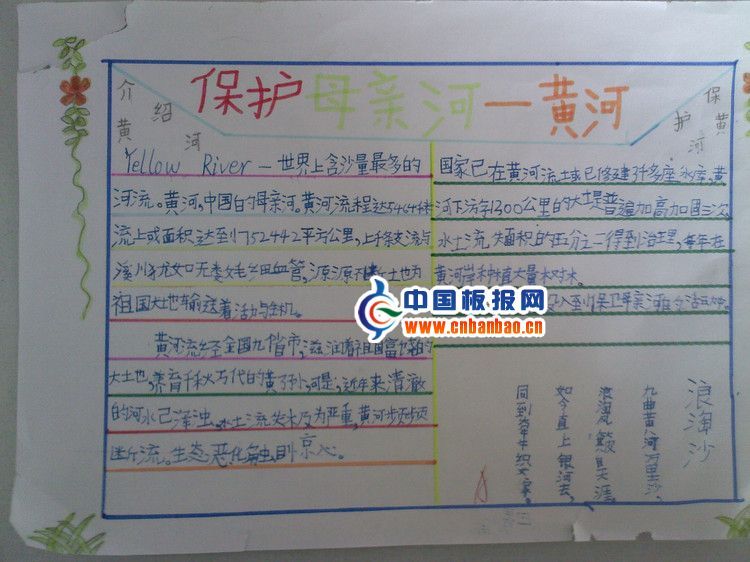 保护母亲河—黄河
介绍黄河
保护黄河
Yellow River—世界上含沙量最多的
河流。黄河,中国的母亲河。黄河流程达5464米
流域面积达到752442平方公里,上千条支流与
溪川犹如无类毛细血管,源源不断土也为
祖国大地输送着活力与生机。
黄河流经全国九个省市,滋润着祖国富饶的
大土也,养育千秋万代的黄子孙,河是,近年来清澈
的河水已浑浊,水土流失极为严重,黄河步频频
断流。生态恶化触目京心。
国家已在黄河流域已修建3千多座水库,黄
河下游1300公里的大堤普遍加高加固三次。
水土流失面积的五分之一得到治理,每年在
黄河岸种植大量树木。
入至到保卫母亲河的活动
中国板报网
www.cnbanbao.cn
浪淘沙
九曲黄河万里沙。
浪淘风簸自天涯。
如今直上银河去,
同到牵牛织女家。